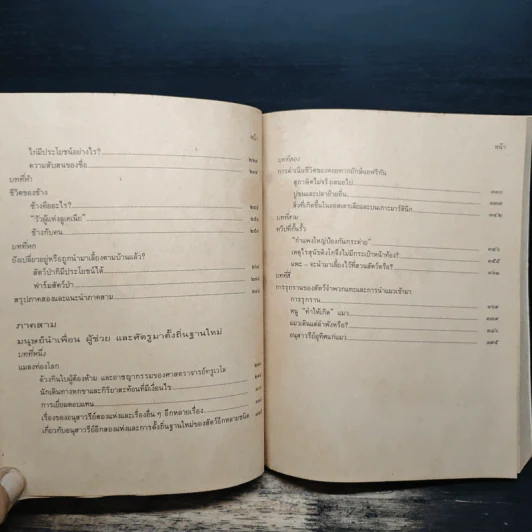 หน้า
ไก่มีประโยชน์อย่างไร?
ความสับสนของชื่อ
บทที่ห้า
ชีวิตของช้าง
ช้างคืออะไร?
"วัวผู้แห่งลูเคเนีย"
ช้างกับคน
บทที่หก
ยังเปลี่ยวอยู่หรือถูกนำมาเลี้ยงตามบ้านแล้ว?
สัตว์ป่าก็มีประโยชน์ได้
ฟาร์มสัตว์ป่า
สรุปภาคสองและแนะนำภาคสาม
ภาคสาม
มนุษย์นำเพื่อน ผู้ช่วย และศัตรูมาตั้งถิ่นฐานใหม่
บทที่หนึ่ง
แมลงท่องโลก
ด้วงกินใบผู้ต้องห้าม และอาชญากรรมของศาสตราจารย์ทรูเวโล
นักเดินทางหกขาและกิริยาสะท้อนที่มีเงื่อนไข
การเยี่ยมตอบแทน
เรื่องของอนุสาวรีย์สองแห่งและเรื่องอื่น ๆ อีกหลายเรื่อง
เกี่ยวกับอนุสาวรีย์อีกสองแห่งและการตั้งถิ่นฐานใหม่ของสัตว์อีกหลายชนิด
หน้า
บทที่สอง
การดำเนินชีวิตของหอยทากยักษ์แอฟริกัน
สุภาษิตไม่จริงเสมอไป
ปูขนและปลาย้ายถิ่น
สิ่งที่เกิดขึ้นในออสเตรเลียและบนเกาะมาร์ตินิก
บทที่สาม
ทวีปที่กั้นรั้ว
"กำแพงใหญ่ป้องกันกระต่าย"
เหตุไรสุนัขดิงโกจึงไม่มีกระเป๋าหน้าท้อง?
แพะ - จะนำมาเลี้ยงไว้ที่สวนสัตว์หรือ?
บทที่สี่
การรุกรานของสัตว์จำพวกแทะและการนำแมวเข้ามา
การรุกราน
หนู "ทำให้เกิด" แมว
แมวเดินแต่ลำพังหรือ?
อนุสาวรีย์อุทิศแก่แมว